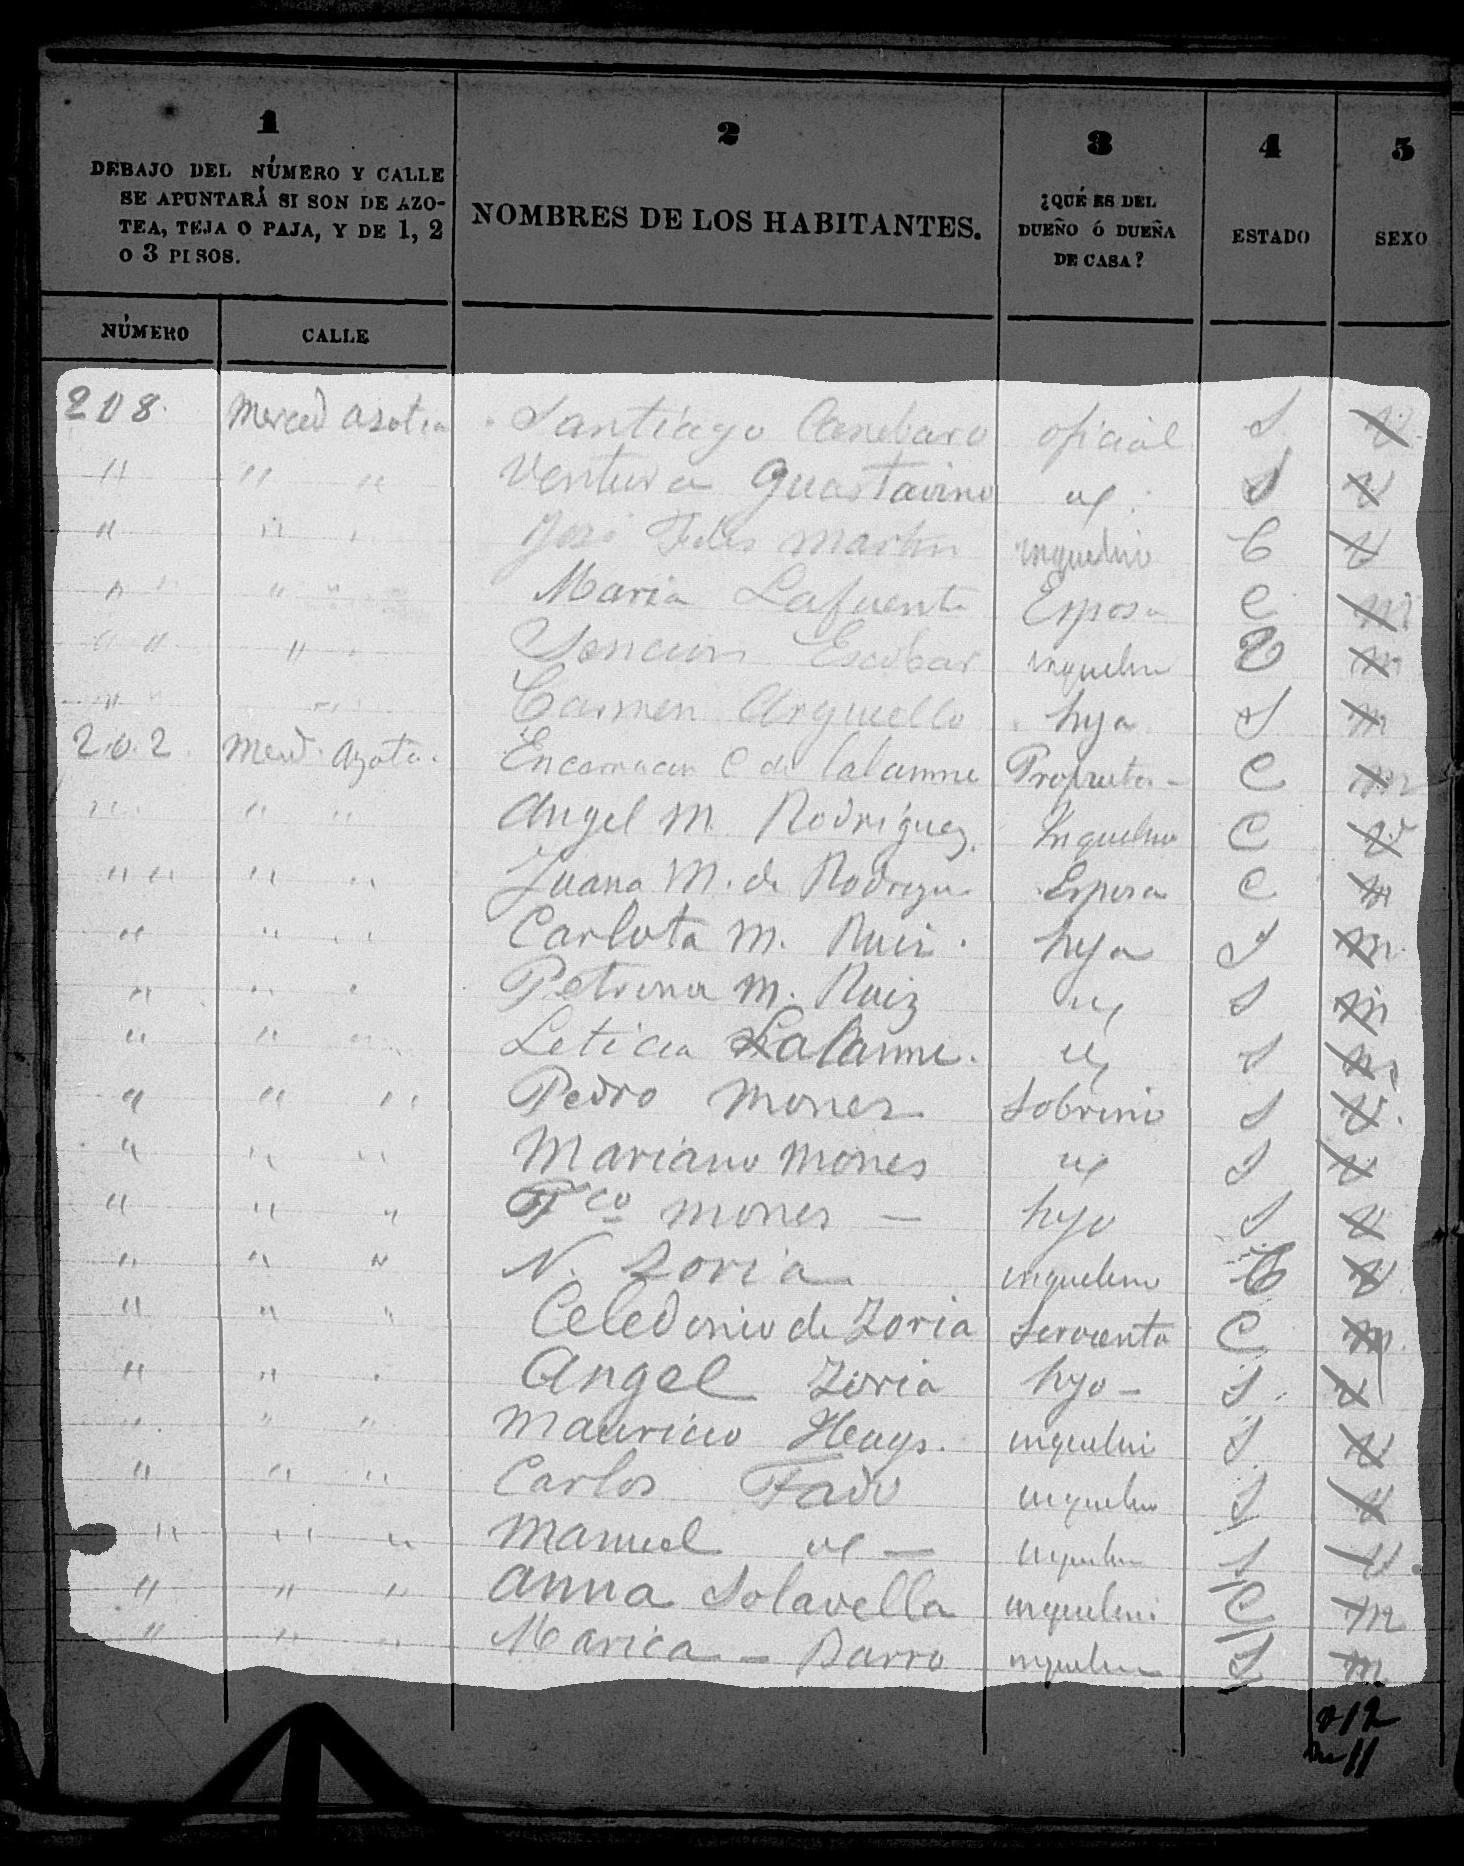 1
DEBAJO DEL NÚMERO Y CALLE
SE APUNTARÁ SI SON DE AZO-
TEA, TEJA O PAJA, Y DE 1, 2
O 3 PISOS.
2
NOMBRES DE LOS HABITANTES.
3
¿QUÉ ES DEL
DUEÑO Ó DUEÑA
DE CASA?
4
ESTADO
5
SEXO
NÚMERO CALLE
208 Merced azotea Santiago Canebaro oficial S V
" " " Ventura Guastavino id S V
" " " José Martin inquelino C V
" " " Maria Lafuente Esposa C m
" " " Escobar inquelino m
" " " Carmen Arguello hija S m
202 Merd azotea Encarnacion C de Lalanne Propieta- C m
" " " Angel M. Rodriguez Inquelino C V
" " " Juana M. de Rodrigu Esposa C m
" " " Carlota M. Ruiz hija S m
" " " Petrona M. Ruiz id S m
" " " Leticia Lalanne id S m
" " " Pedro Mones Sobrino S V
" " " Mariano Mones id S V
" " " Fco Mones — hijo S V
" " " N. Zoria inquelino C V
" " " Celedonio de Zoria Servienta C m
" " " Angel Zoria hijo - S V
" " " Mauricio Heays. inquelino S V
" " " Carlos Fado inquelino S V
" " " Manuel id — inquelino S V
" " " Anna Solavella inquelino C m
" " " Marica - Barro inquelino S m
v 12
m 11